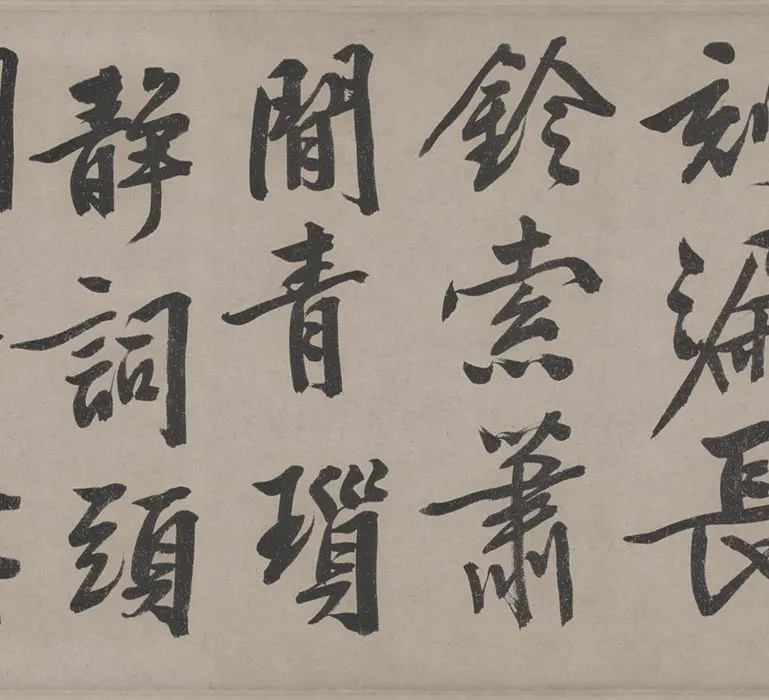 刻漏長
鈴索蕭
閒青瑣
靜詞頭